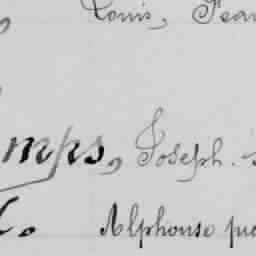 Louis, Jean
mps, Joseph.
Alphonse